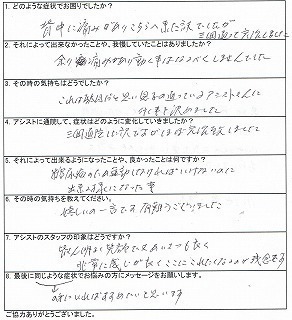 1. どのような症状でお困りでしたか？
背中に痛みがありこちらへ来た訳でしたが
三回通って完治しました
2. それによって出来なかったことや、我慢していたことはありましたか？
余り痛みがあり動く事はなるべくしませんでした
3. その時の気持ちはどうでしたか？
これは駄目だと思い息子の通っているアシストさんに
行く事を決めました
4. アシストに通院して、症状はどのように変化していきましたか？
三回通院した訳ですがほぼ完治致しました
5. それによって出来るようになったことや、良かったことは何ですか？
糖尿病のため運動しなければいけないのに
出来る様になった事
6. その時の気持ちを教えてください。
嬉しいの一言です 有難うございました
7. アシストのスタッフの印象はどうですか？
皆さん明るく笑顔で又あいさつも良く
非常に感じが良くここにこれたことが
8. 最後に同じような症状でお悩みの方にメッセージをお願いします。
いればすすめたいと思います
ご協力ありがとうございました。